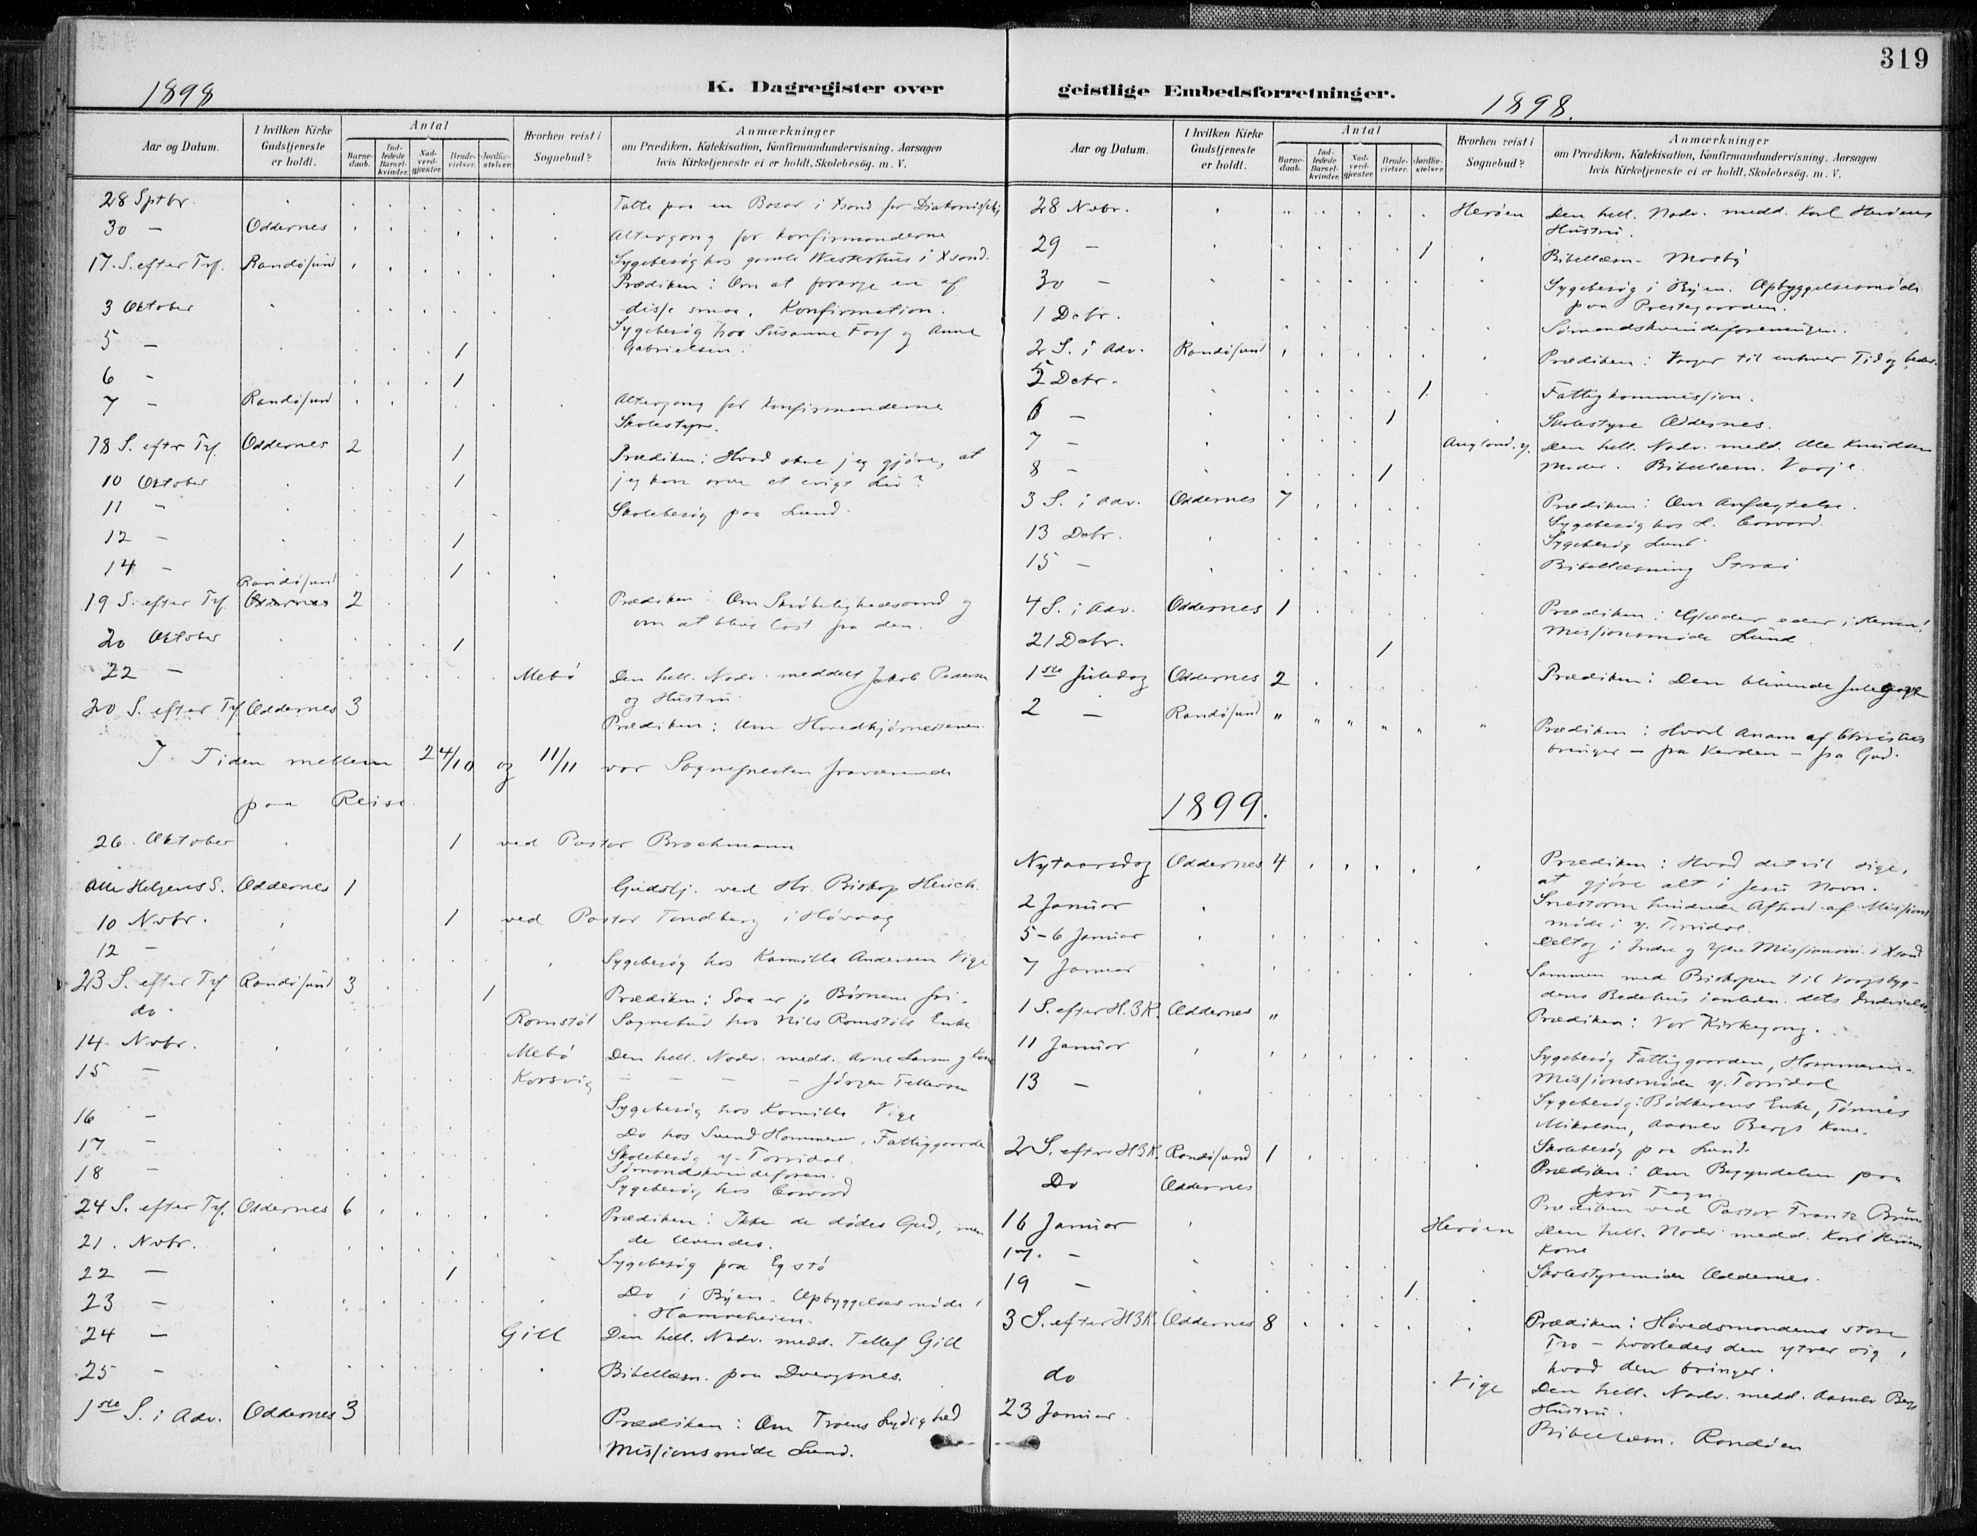 319
1898
K. Dagregister over
geistlige Embedsforretninger.
1898.
Aar og Datum.
I hvilken Kirke Gudstjeneste er holdt.
Antal
Barnedaab.
Indledede Barselkvinder.
Nadverdgjæster.
Brudevielser.
Jordfæstelser.
Hvorhen reist i Sognebud?
Anmærkninger
om Prædiken, Katekisation, Konfirmandundervisning, Aarsagen
hvis Kirketjeneste ei er holdt, Skolebesøg. m. V.
28 Sptbr. Talte paa en Basar i Xsand for
30 — Oddernes Altergang for Konfirmanderne
Sygebesøg hos gamle Westerhus i Xsand.
17. S. efter Trf. Randøsund Prædiken: Om at forarge en af
disse smaa. Konfirmation.
3 Oktober Sygebesøg hos Susanne Foss og Anne
Gabrielsen.
5 — 1
6 — 1
7 — Randøsund Altergang for Konfirmanderne
Skolestyre.
18 S. efter Trf. Oddernes 2 1 Prædiken: Hvad skal jeg gjøre, at
jeg kan arve et evigt Liv?
10 Oktober 1
11 — Skolebesøg paa Lund.
12 — 1
14 — 1
Randøsund
19 S. efter Trf. Oddernes 2 Prædiken: Om Skrøbelighedsaand og
om at blive løst fra den.
20 Oktober 1
22 — Mebø Den hell. Nadv. meddelt Jakob Pedersen
og Hustru.
20 S. efter Trf Oddernes 3 Prædiken: Om Hovedhjørnestenen.
I Tiden mellem 24/10 og 11/11 var Sognepresten fraværende
paa Reise.
26. Oktober 1 ved Pastor Brochmann
Alle Helgens S. Oddernes 1 Gudstj. ved Hr. Biskop Heuch.
10 Novbr. 1 ved Pastor Tandberg i Høvaag
12 — Sygebesøg hos Kamilla Andersen Vige
23 S. efter Trf Randøsund 3 1 Prædiken: Saa er jo Børnene fri.
do. Romstøl Sognebud hos Nils Romstøls Enke
14 Novbr. Mebø Den hell. Nadv. medd. Arne Larsen og Kone
15 — Korsvig — — — — Jørgen Tellefsen
Sygebesøg hos Kamilla Vige
16 — Do hos Svend Hommeren, Fattiggaarden
17 — Skolebesøg y. Torridal
18 — Sømandskvindeforen.
Sygebesøg hos Coward
24 S. efter Trf. Oddernes 6 Prædiken: Ikke de dødes Gud, men
de levendes.
21. Novbr. Sygebesøg paa Egstø
22 — 1
23 — Do i Byen. Opbyggelsesmøde i
Hamreheien.
24 — Gill Den hell. Nadv. medd. Tellef Gill
25 — Bibellæsn. paa Dvergsnes.
1ste S. i Adv. Oddernes 3 Prædiken: Om Troens Lydighed
Missionsmøde Lund.
Aar og Datum.
I hvilken Kirke Gudstjeneste er holdt.
Antal
Barnedaab.
Indledede Barselkvinder.
Nadverdgjæster.
Brudevielser.
Jordfæstelser.
Hvorhen reist i Sognebud?
Anmærkninger
om Prædiken, Katekisation, Konfirmandundervisning, Aarsagen
hvis Kirketjeneste ei er holdt, Skolebesøg. m. V.
28 Novbr. Herøen Den hell. Nadv. medd. Karl Herøens
Hustru.
29 — 1 Bibellæsn. Mosby
30 — Sygebesøg i Byen. Opbyggelsesmøde
paa Prestegaarden.
1 Debr. Sømandskvindeforeningen.
2 S. i Adv. Randøsund Prædiken: Vaager til enhver Tid og beder.
5 Debr. 1 Fattigkommission.
6 — 1 Skolestyre Oddernes.
7 — Augland. y. Den hell. Nadv. medd. Ole Knudsens
Moder. Bibellæsn. Voije.
8 — 1
3 S. i Adv. Oddernes 7 Prædiken: Om Anfægtelse.
Sygebesøg hos L. Coward.
13 Debr. Sygebesøg Lund.
15 — Bibellæsning Strai
4 S. i Adv. Oddernes 1 Prædiken: Glæder eder i Herren!
Missionsmøde Lund.
21 Debr. 1
1ste Juledag Oddernes 2 Prædiken: Den blivende Julegave
2 — Randøsund " Prædiken: Hvad Navn af Christus
bringer — fra Verden — fra Gud.
1899.
Nytaarsdag Oddernes 4 Prædiken: Hvad det vil sige,
at gjøre alt i Jesu Navn.
2 Januar Snestorm hindrede Afhold. af Missions
møde i y. Torridal.
5-6 Januar Deltog i Indre og Ydre Missionsm. i Xsand
7 Januar Sammen med Biskopen til Vaagsbyg-
dens Bedehus i anledn. dets Indvielse
1 S. efter H.3K. Oddernes " Prædiken: Vor Kirkegang.
11 Januar Sygebesøg Fattiggaarden, Hommeren.
Missionsmøde y. Torridal
13 — Sygebesøg: Bødkerens Enke, Tønnes
Mikalsen, Aanulv Bergs Kone.
Skolebesøg paa Lund.
2 S. efter H3K. Randøsund 1 Prædiken: Om Begyndelsen paa
Jesu Tegn.
Do Oddernes Prædiken ved Pastor Frantz Bruun
16 Januar Herøen Den hell. Nadv. medd. Karl Herøens
Kone
17. — Skolestyremøde Oddernes.
19 — 1
3 S. efter H3K. Oddernes 8 Prædiken: Høvedsmandens store
Tro — hvorledes den ytrer sig,
hvad den bringer.
do Vige Den hell. Nadv. medd. Aanulv Bergs
Hustru.
23 Januar. Bibellæsn. Randøen